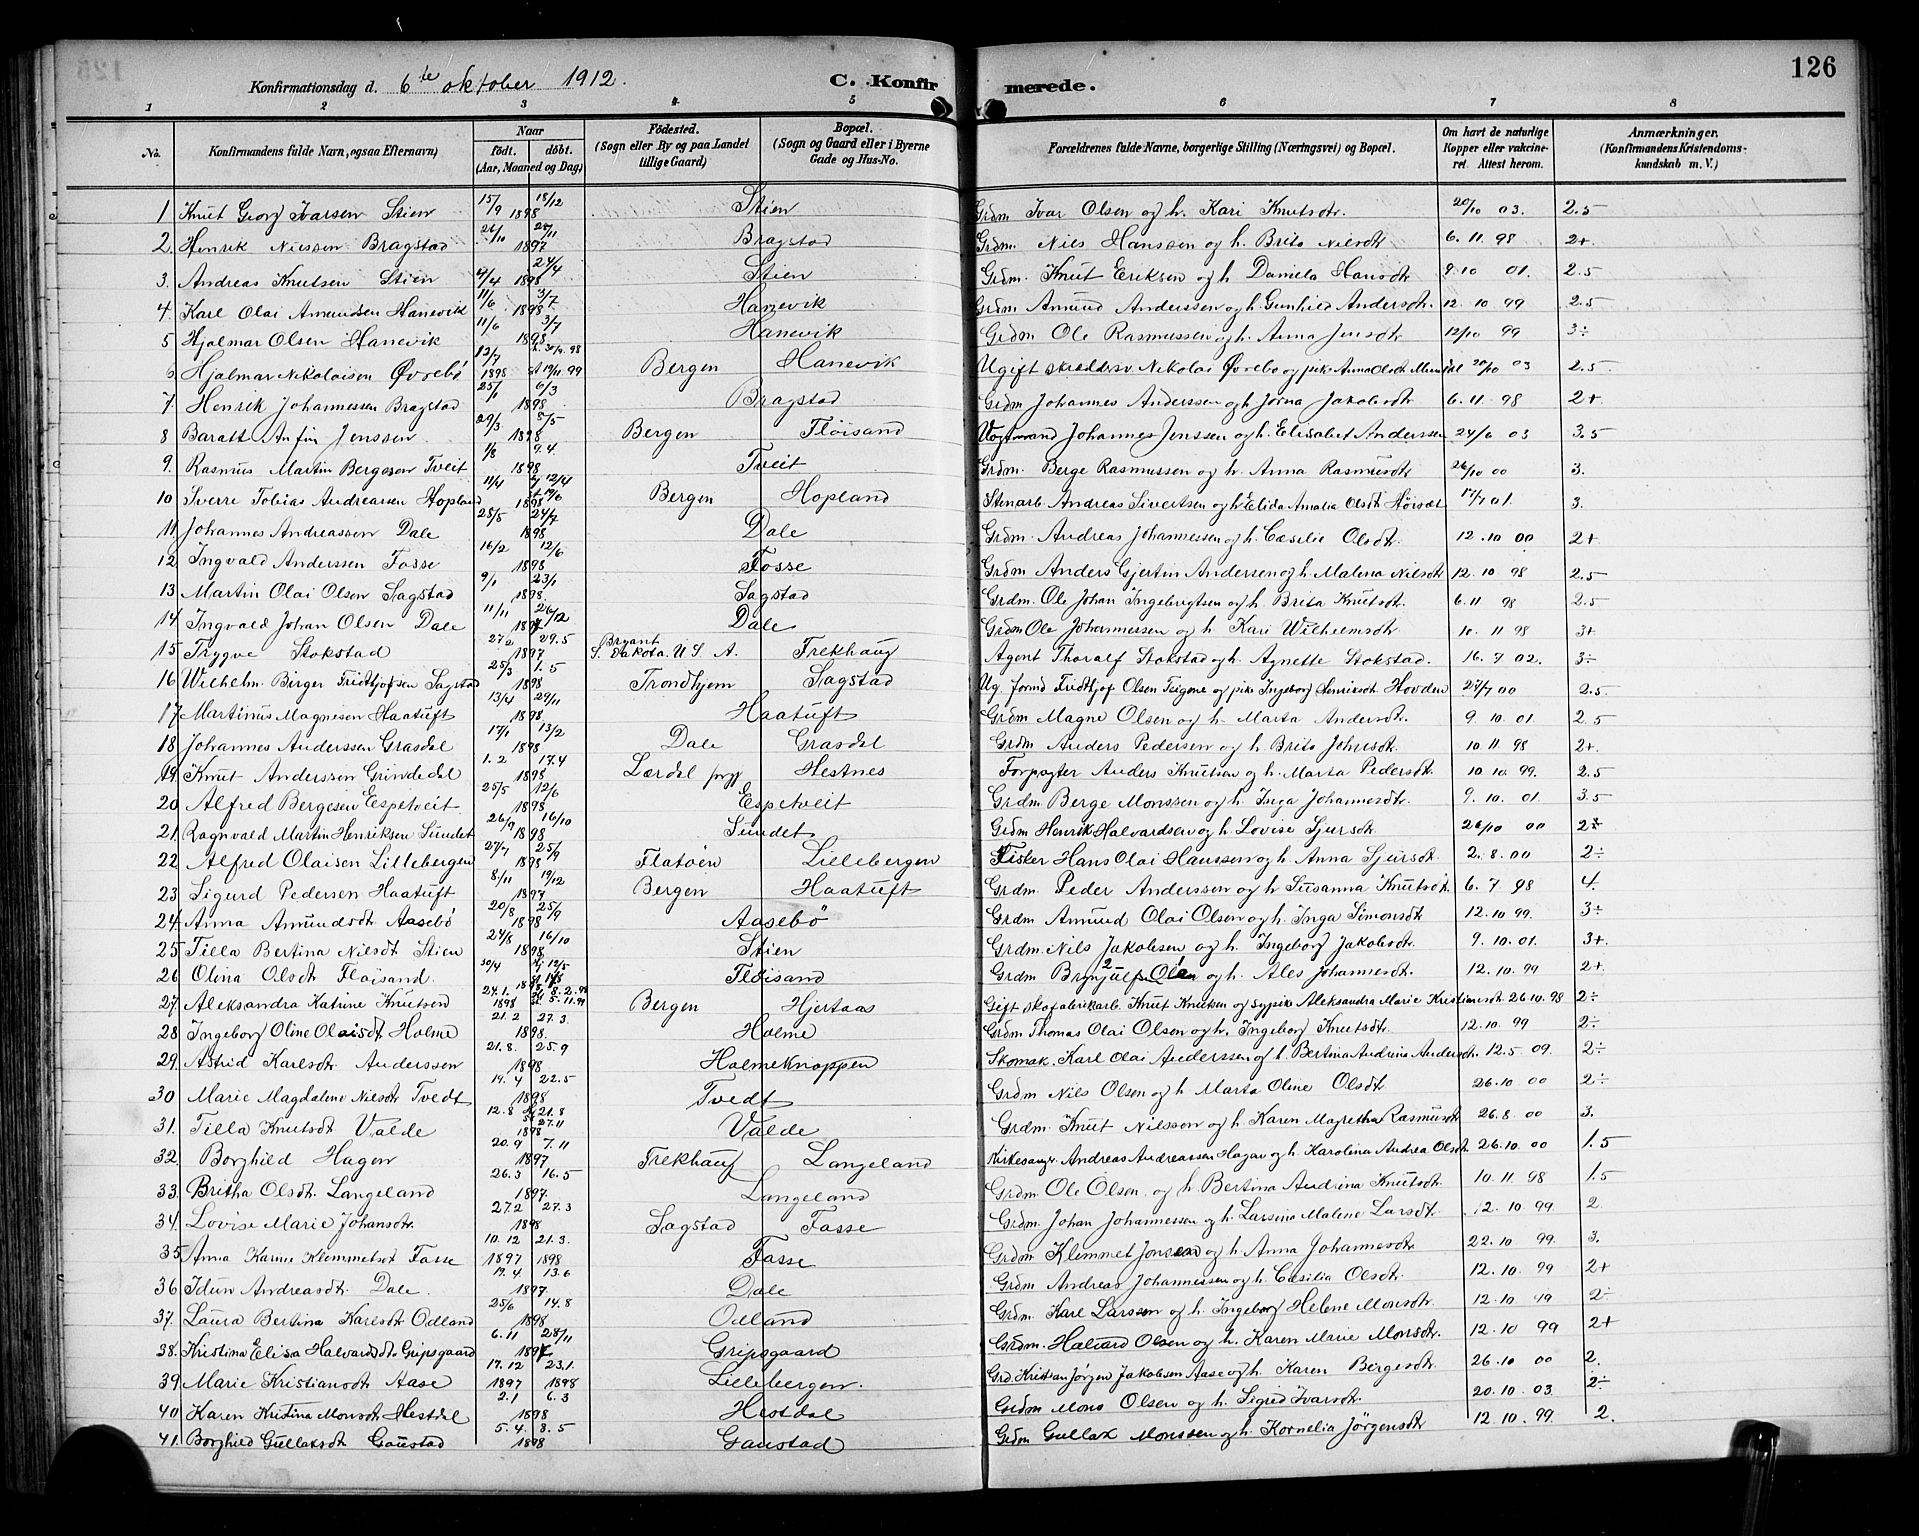 126
Konfirmationsdag d. 6te oktober 1912. C. Konfirmerede.
1 2 3 4 5 6 7 8
No. Konfirmandens fulde Navn, ogsaa Efternavn) Naar født. døbt. (Aar, Maaned og Dag) Fødested. (Sogn eller By og paa Landet tillige Gaard) Bopæl. (Sogn og Gaard eller i Byerne Gade og Hus-No. Forældrenes fulde Navne, borgerlige Stilling (Næringsvei) og Bopæl. Om havt de naturlige Kopper eller vakcineret. Attest herom. Anmærkninger. (Konfirmandens Kristendomskundskab m. V.)
1 Knut Georg Ivarsen Stien 15/9 18/12 1898 Stien Grdm Ivar Olsen og h. Kari Knutsdtr. 20/10 03. 2.5
2. Henrik Nielsen Bragstad 26/10 1897 Bragstad Grdm. Nils Hanssen og h. Brita Nilsdtr 6.11.98 2+
3. Andreas Knutsen Stien 4/4 24/4 1898 Stien Grdm. Knut Eriksen og h. Daniela Hansdtr 9.10 01. 2.5
4. Karl Olai Amundsen Hanevik 11/6 3/7 1898 Hanevik Grdm Amund Anderssen og h. Gunhild Andersdtr. 12.10.99 2.5
5 Hjalmar Olsen Hanevik 11/6 3/7 1898 Hanevik Grdm Ole Rasmussen og h. Anna Jensdtr 12/10 99 3÷
6. Hjalmar Nikolaisen Øvrebø 12/7 1898 Bergen Hanevik Ugift skræddersv. Nikolai Øvrebø og pike Anna Olsdtr Mundal 20/10 03 2.5
7. Henrik Johannessen Bragstad 25/1 6/3 1898 Bragstad Grdm Johannes Anderssen og h Jorna Jakobsdtr 6.11.98 2+
8 Baratt Anfin Jenssen 29/3 8/5 1898 Bergen Fløisand Vogtmand Johannes Jenssen og h. Elisabet Anderssen 24/6 03 3.5
9. Rasmus Martin Bergesen Tveit 1/8 9.4. 1898 Tveit Grdm. Berge Rasmussen og h. Anna Rasmusdtr 26/10 00 3.
10 Sverre Tobias Andreassen Hopland 11/4 1898 Bergen Hopland Stenarb. Andreas Sivertsen og h Elida Amalia Olsdtr 01. 3.
11. Johannes Andreassen Dale 28/5 24/7 1898 Dale Grdm. Andreas Johannessen og h. Cæsilie Olsdtr. 12.10 00 2+
12 Ingvald Anderssen Fosse 16/2 12/6 1898 Fosse Grdm Anders Gjertin Andersen og h. Malena Nilsdtr 12.10 98 2.5
13 Martin Olai Olsen Sagstad 9/1 23/1 1898. Sagstad Grdm. Ole Johan Ingebrigtsen og h. Brita Knutsdtr. 6.11 98 2.5
14 Ingvald Johan Olsen Dale 11/11 26/12 1897 Dale Grdm Ole Johannessen og h. Kari Wilhelmsdtr 10.11 98 3+
15 Trygve Stokstad 27.2 29.5 1897 Bryant S. Dakota. U S A. Frekhaug Agent Thoralf Stokstad og h. Agnette Stokstad. 16.7 02. 3÷
16 Wilhelm. Birger Fridtjofsen Sagstad 25/3 1.5 1898 Trondhjem Sagstad Ug. formd Fridthjof Olsen Teigene og pike Ingeborg Henriksdtr Hovden 27/7 00 2.5
17 Martinus Magnesen Haatuft 13/4 1898. Haatuft Grdm Magne Olsen og h. Marta Andersdtr. 9.10.01. 2.5
18 Johannes Anderssen Grasdal 17/1 13/2 1898 Dale Grasdal Grdm Anders Pedersen og h. Brita Johnsdtr. 10.11.98 2+
19. Knut Anderssen Grindedal 1.2 17.4 1898 Lærdal prgj Hestnes Forpagter Anders Knutsen og h. Marta Pedersdtr. 10.10.99. 2.5
20 Alfred Bergesen Espetveit 25/5 12/6 1898 Espetveit Grdm Berge Monssen og h. Inga Johannesdtr. 9.10.01. 3.5
21. Ragnvald Martin Henriksen Sundet 26/9 16/10 1898 Sundet Grdm Henrik Halvardsen og h. Lovise Sjursdtr 26/10 00
22 Alfred Olaisen Lillebergen 27/7 25/9 1898 Flatøen Lillebergen Fisker Hans Olai Hanssen og h. Anna Sjursdtr. 2.8.00 2÷
23 Sigurd Pedersen Haatuft. 8/11 19/12 1897 Bergen Haatuft Grdm. Peder Anderssen og h Susanna Knutsdtr. 6.7.98 4.
24. Anna Amundsdtr Aasebø 20/8 25/9 1898 Aasebø Grdm Amund Olai Olsen og h. Inga Simonsdtr 12.10.99. 3÷
25. Tilla Bertina Nilsdtr Stien 24/8 16/10 1898. Stien Grdm Nils Jakobsen og h. Ingeborg Jakobsdtr. 9.10.01. 3+
26 Olina Olsdtr Fløisand. 30/4 Fløisand Grdm Brynjulf Olsen og h. Ales Johannesdtr. 12.10.99 2+
27. Aleksandra Katrine Knutsen 24.1. 1898 Bergen Hjertaas Gift skofabrikarb. Knut Knutsen og sypik. Aleksandra Marie Kristiansdtr. 26.10.98 2÷
28 Ingeborg Oline Olaisdtr Holme 21.2 27.3. 1898. Holme Grdm. Thomas Olai Olsen og h. Ingeborg Knutsdtr. 12.10.99 2÷
29. Astrid Karlsdtr. Anderssen 21.8. 25.9 1898 Holmeknappen Skomak. Karl Olai Anderssen og h. Bertina Andrina Andersdtr. 12.5 09. 2÷
30 Marie Magdalene Nilsdtr Tvedt 19.4 22.5 1898 Tvedt Grdm Nils Olsen og h. Marta Oline Olsdtr 26.10 00 2÷
31. Tilla Knutsdtr Valde 12.8 21.8 27.11 1898 Valde Grdm. Knut Nilssen og h. Karen Magretha Rasmusdtr 26.8.00 3.
32. Borghild Hagen 20.9 7.11 1897 Frekhaug Langeland Kirkesanger. Andreas Andreassen Hagen og h. Karolina Andrea Olsdtr. 26.10 00 1.5
33. Britha Olsdtr. Langeland 26.3 16.5 1897. Langeland Grdm. Ole Olsen og h. Bertina Andrina Knutsdtr. 10.11.98 1.5
34. Lovise Marie Johansdtr. 27.2 27.3 1898 Sagstad Fasse Grdm. Johan Johannessen og h. Larsina Malene Larsdtr. 12.10 99. 2.
35 Anna Karine Klemmetsdtr Fasse 10.12 1897 21.3. 1898 Fasse Grdm Klemmet Jonsen og h. Anna Johannesdtr. 22.10 99. 3.
36 Idun Andreasdtr Dale. 19.4. 13.6 1897. Dale Grdm Andreas Johannessen og h. Cæsilia Olsdtr. 12.10.99 2+
37. Laura Bertina Karlsdtr Odland 25/6 14.8 1898 Odland Grdm. Karl Larssen og h. Ingeborg Helene Monsdtr. 12.10 2÷
38. Kristina Elisa Halvardsdtr Gripsgaard 6.11 28/11 1897 Gripsgaard Grdm. Halvard Olsen og h. Karen Marie Monsdtr. 12.10 99 2+
39 Marie Kristiansdtr Aase 17.12 1897 23.1. 1898 Lillebergen. Grd. Kristian Jørgen Jakobsen Aase og h. Karen Bergesdtr. 26.10 00 2.
40 Karen Kristina Monsdtr Hestdal 2.1 6.3 1898 Hestdal Grdm Mons Olsen og h. Sigred Ivarsdtr. 20.10 03. 2÷
41. Borghild Gullaksdtr Gaustad 5.4. 8.5 1898 Gaustad Grdm Gullak Monssen og h. Kornelia Jørgensdtr. 12.10.99. 2.